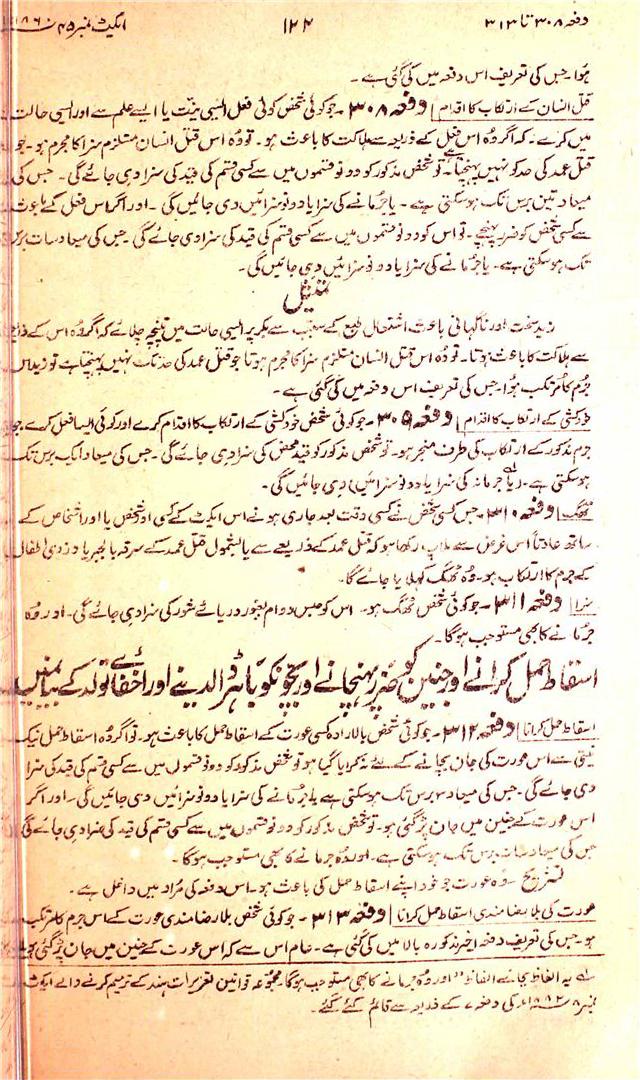 دفعہ ۳۰۸ تا ۳۱۳ ۱۲۴ ایکٹ نمبر ۴۵ ۱۸۶۰
ہوا۔ جس کی تعریف اس دفعہ میں کی گئی ہے۔
قتل انسان کے ارتکاب کا اقدام دفعہ ۳۰۸۔ جو کوئی شخص کوئی فعل ایسی نیت یا ایسے علم سے اور ایسی حالت
میں کرے۔ کہ اگر وہ اس فعل کے ذریعہ سے ہلاکت کا باعث ہو۔ تو وہ اس قتل انسان مستلزم سزا کا مجرم ہو۔ جو
قتل عمد کی حد کو نہیں پہنچتا۔ تو شخص مذکور کو دونو قسموں میں سے کسی قسم کی قید کی سزا دی جائے گی۔ جس کی
میعاد تین برس تک ہو سکتی ہے۔ یا جرمانے کی سزا یا دونو سزائیں دی جائیں گی۔ اور اگر اس فعل کے باعث
سے کسی شخص کو ضرر پہنچے۔ تو اس کو دونو قسموں میں سے کسی قسم کی قید کی سزا دی جائے گی۔ جس کی میعاد سات برس
تک ہو سکتی ہے۔ یا جرمانے کی سزا یا دونو سزائیں دی جائیں گی۔
تمثیل
زید سخت اور ناگہانی باعث اشتعال طبع کے سبب سے بکر پر ایسی حالت میں تپنچہ چلائے کہ اگر وہ اس کے ذریعے
سے ہلاکت کا باعث ہوتا۔ تو وہ اس قتل انسان مستلزم سزا کا مجرم ہوتا جو قتل عمد کی حد تک نہیں پہنچتا ہے تو زید اس
جرم کا مرتکب ہوا۔ جس کی تعریف اس دفعہ میں کی گئی ہے۔
خودکشی کے ارتکاب کا اقدام دفعہ ۳۰۹۔ جو کوئی شخص خودکشی کے ارتکاب کا اقدام کرے اور کوئی ایسا فعل کرے جو
جرم مذکور کے ارتکاب کی طرف منجر ہو۔ تو شخص مذکور کو قید محض کی سزا دی جائے گی۔ جس کی میعاد ایک برس تک
ہو سکتی ہے۔ (یا جرمانہ کی سزا یا دونو سزائیں) دی جائیں گی۔
ٹھگ دفعہ ۳۱۰۔ جس کسی شخص نے کسی وقت بعد جاری ہونے اس ایکٹ کے کسی اور شخص یا اور اشخاص کے
ساتھ عادتاً اس غرض سے ملاپ رکھا ہو کہ قتل عمد کے ذریعے سے یا بشمول قتل عمد کے سرقہ بالجبر یا دزدی اطفال
کے جرم کا ارتکاب ہو۔ وہ ٹھگ کہلایا جائے گا۔
سزا دفعہ ۳۱۱۔ جو کوئی شخص ٹھگ ہو۔ اس کو حبس دوام بعبور دریائے شور کی سزا دی جائے گی۔ اور وہ
جرمانے کا بھی مستوجب ہوگا۔
اسقاط حمل کرانے اور جنین کو ضرر پہنچانے اور بچونکو باہر ڈالدینے اور اخفائے تولد کے بیانمیں
اسقاط حمل کرانا دفعہ ۳۱۲۔ جو کوئی شخص بالارادہ کسی عورت کے اسقاط حمل کا باعث ہو۔ تو اگر وہ اسقاط حمل نیک
نیتی سے اس عورت کی جان بچانے کے لئے نہ کرایا گیا ہو تو شخص مذکور کو دونو قسموں میں سے کسی قسم کی قید کی سزا
دی جائے گی۔ جس کی میعاد ۳ برس تک ہو سکتی ہے یا جرمانے کی سزا یا دونو سزائیں دی جائیں گی۔ اور اگر
اس عورت کے جنین میں جان پڑ گئی ہو۔ تو شخص مذکور کو دونو قسموں میں سے کسی قسم کی قید کی سزا دی جائے گی
جس کی میعاد سات برس تک ہو سکتی ہے۔ اور وہ جرمانے کا بھی مستوجب ہوگا۔
تشریح۔ وہ عورت جو خود اپنے اسقاط حمل کی باعث ہو۔ اس دفعہ کی مراد میں داخل ہے۔
عورت کی بلا رضامندی اسقاط حمل کرانا دفعہ ۳۱۳۔ جو کوئی شخص بلا رضامندی عورت کے اس جرم کا مرتکب
ہو۔ جس کی تعریف دفعہ اخیر مذکورہ بالا میں کی گئی ہے۔ عام اس سے کہ اس عورت کے جنین میں جان پڑ گئی ہو
لے یہ الفاظ بجائے الفاظ "اور وہ جرمانے کا بھی مستوجب ہوگا۔ مجموعہ قوانین تعزیرات ہند کے ترمیم کرنے والے ایکٹ
نمبر ۸ ۱۸۸۲ء کی دفعہ ۷ کے ذریعہ سے قائم کئے گئے۔